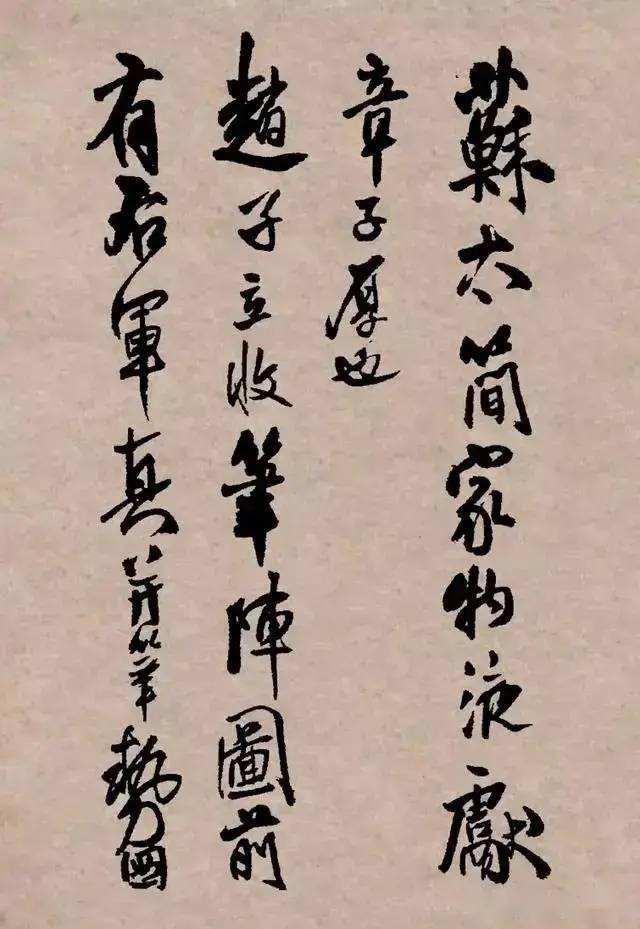 蘇太簡家物液獻
章子厚也
趙子立收筆陣圖前
有右軍真并筆勢圖